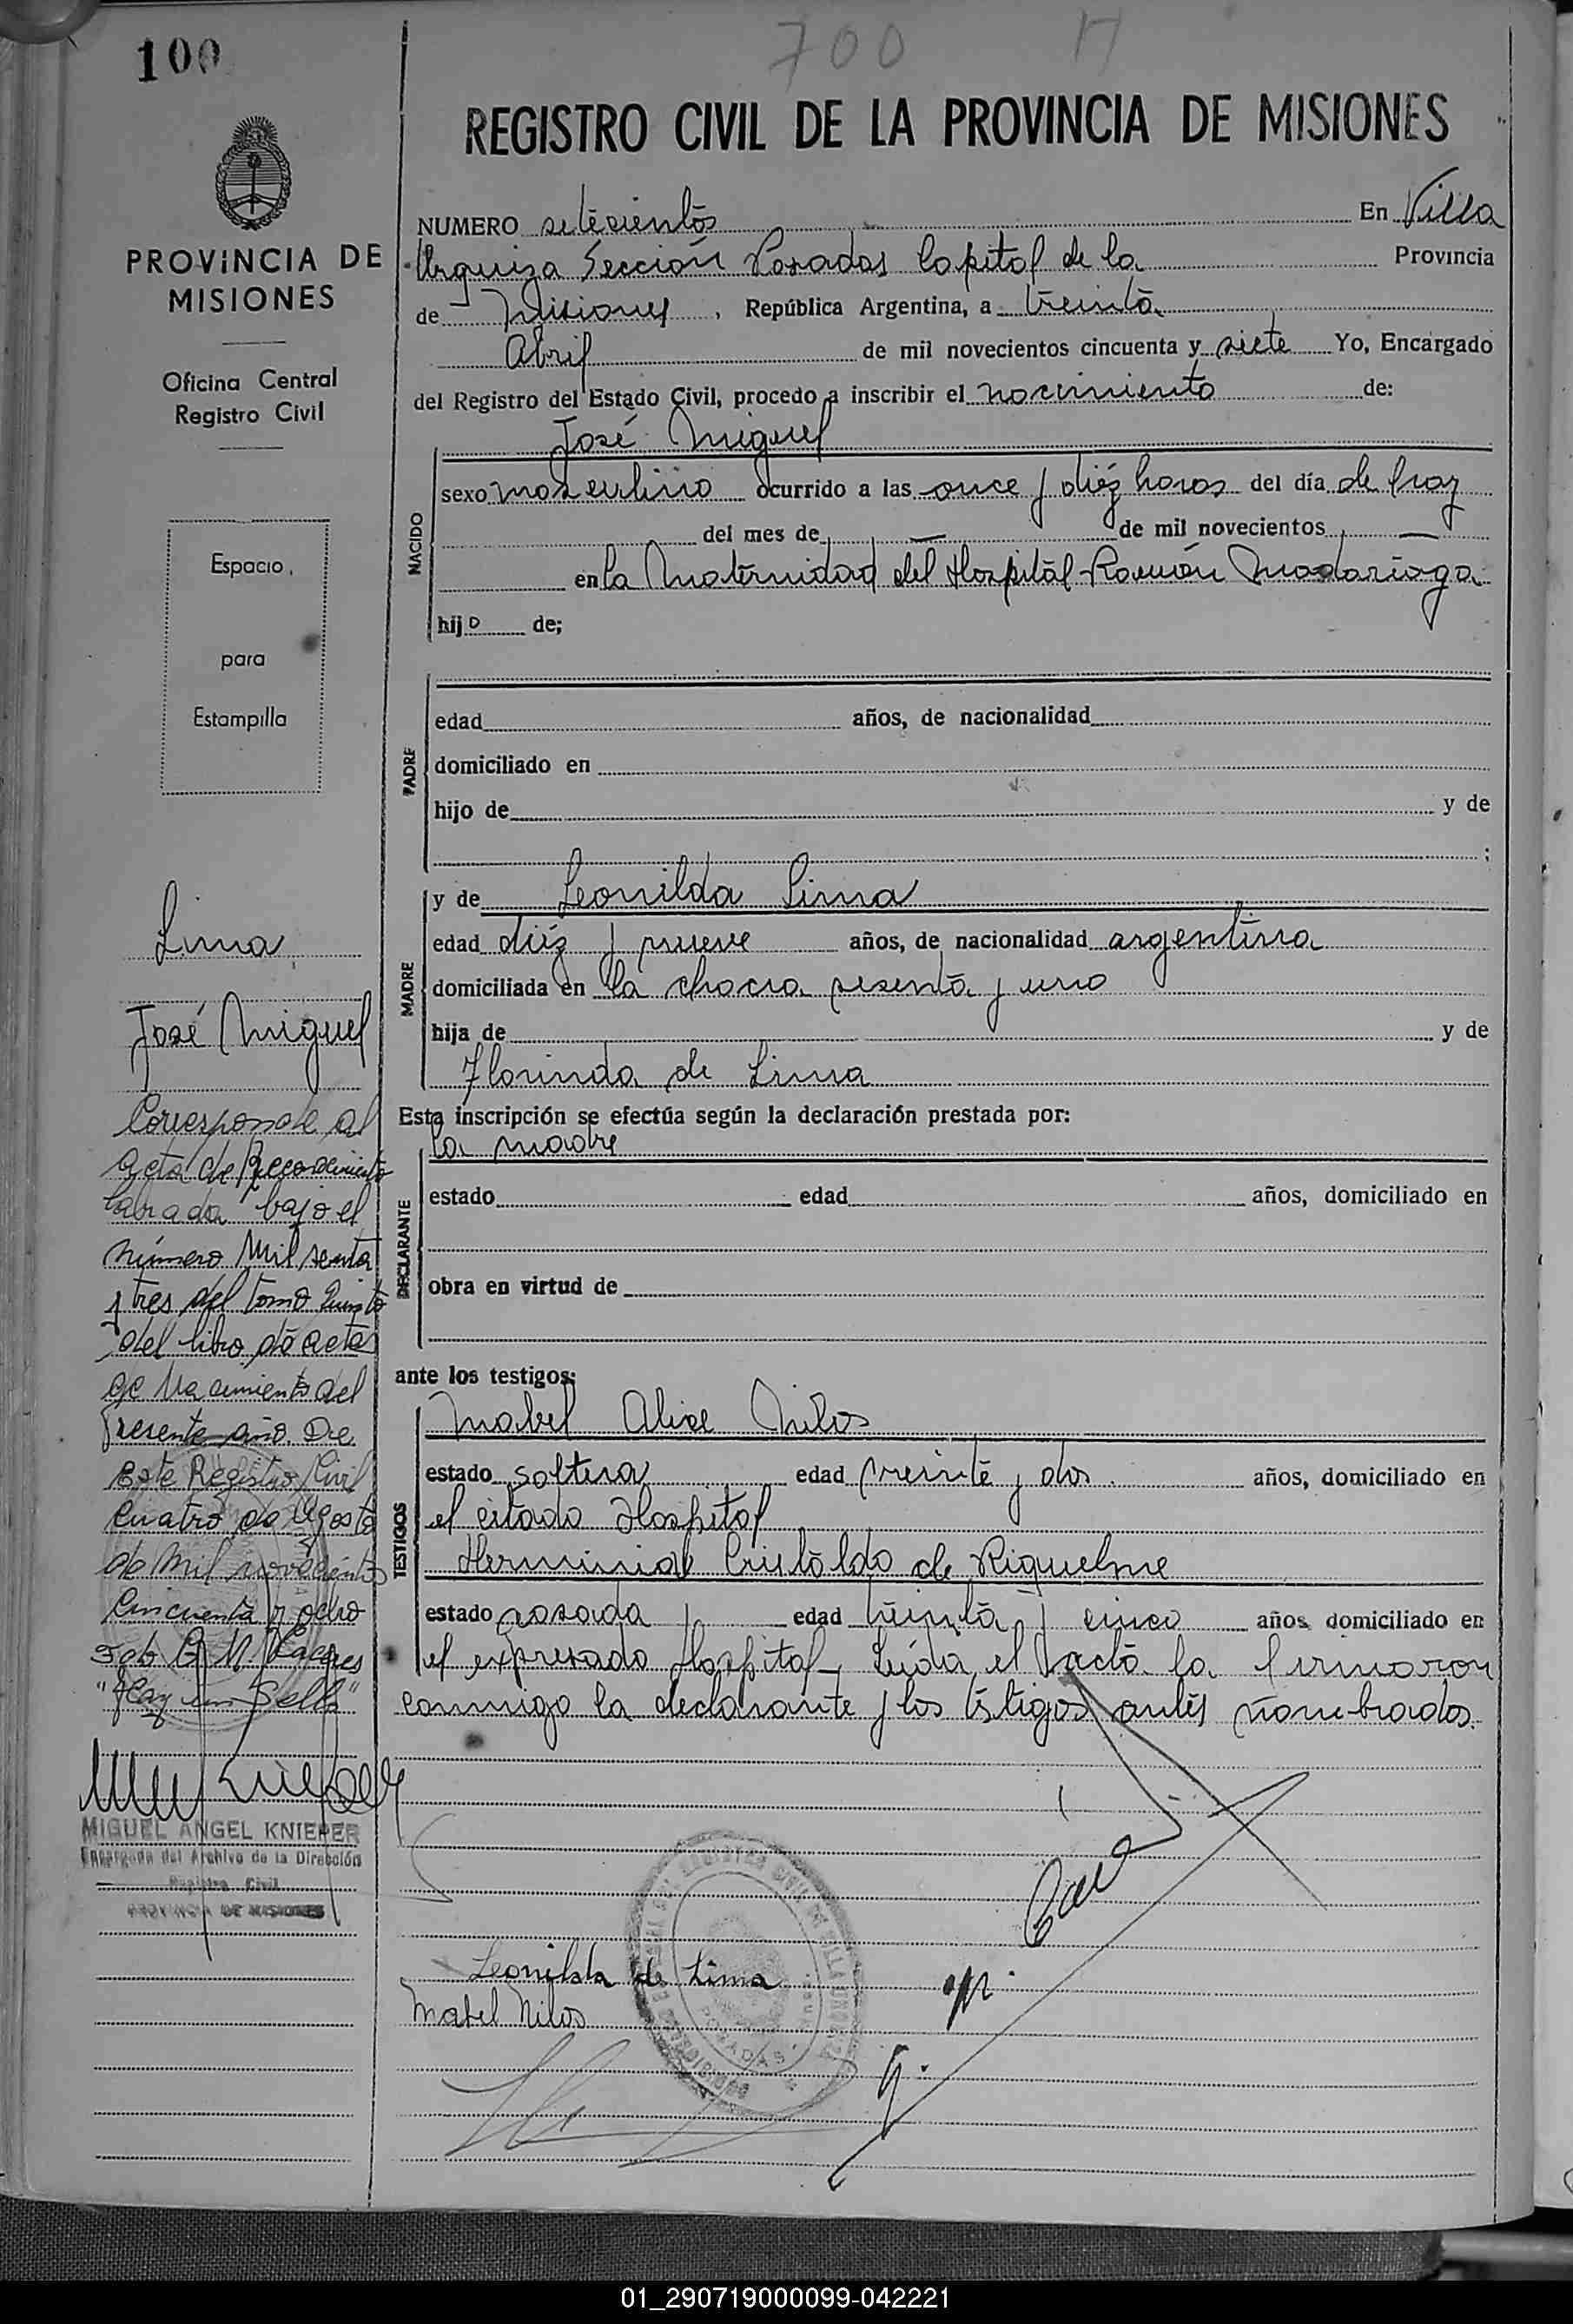 100
700
PROVINCIA DE
MISIONES
Oficina Central
Registro Civil
Espacio
para
Estampilla
Lima
José Miguel
Corresponde al
acta de Reconocimiento
labrada bajo el
número Mil senta
y tres del tomo Quinto
del libro de actas
de Nacimiento del
presente año. De
Este Registro Civil
Cuatro de Agosto
de Mil novecientos
Cincuenta y ocho
"Hay un Sello"
MIGUEL ANGEL KNIEPER
Encargado del Archivo de la Dirección
Registro Civil
PROVINCIA DE MISIONES
REGISTRO CIVIL DE LA PROVINCIA DE MISIONES
NUMERO setecientos En Villa
Urquiza Sección Posadas Capital de la Provincia
de Misiones, República Argentina, a treinta
Abril de mil novecientos cincuenta y siete Yo, Encargado
del Registro del Estado Civil, procedo a inscribir el nacimiento de:
José Miguel
NACIDO
sexo masculino ocurrido a las once y diéz horas del día de hoy
del mes de — de mil novecientos —
en la Maternidad del Hospital Ramón Madariaga
hijo de;
PADRE
edad años, de nacionalidad
domiciliado en
hijo de y de
;
MADRE
y de Leonilda Lima
edad diéz y nueve años, de nacionalidad argentina
domiciliada en la chacra sesenta y uno
hija de y de
Florinda de Lima
Esta inscripción se efectúa según la declaración prestada por:
la madre
DECLARANTE
estado edad años, domiciliado en
obra en virtud de
ante los testigos:
TESTIGOS
Mabel Alice Nilos
estado soltera edad treinta y dos años, domiciliado en
el citado Hospital
Herminia Cristaldo de Riquelme
estado casada edad treinta y cinco años, domiciliado en
el expresado Hospital, Leida el acta la firmaron
conmigo la declarante y los testigos antes nombrados.
Leonilda de Lima
Mabel Nilos
POSADAS
01_290719000099-042221